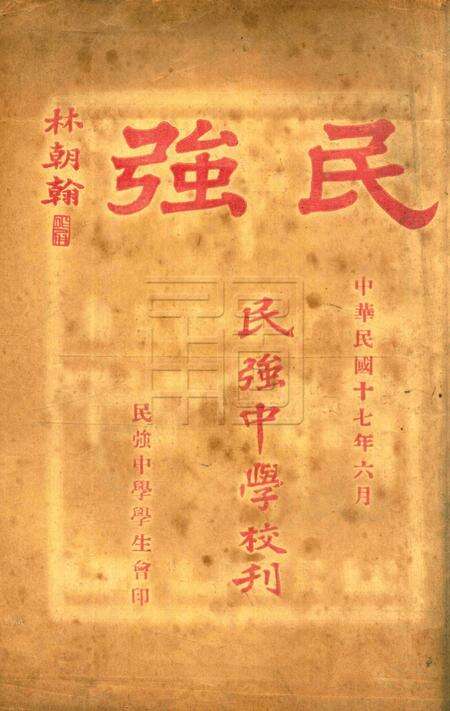 民強
林朝翰
中華民國十七年六月
民強中學校刊
民強中學學生會印